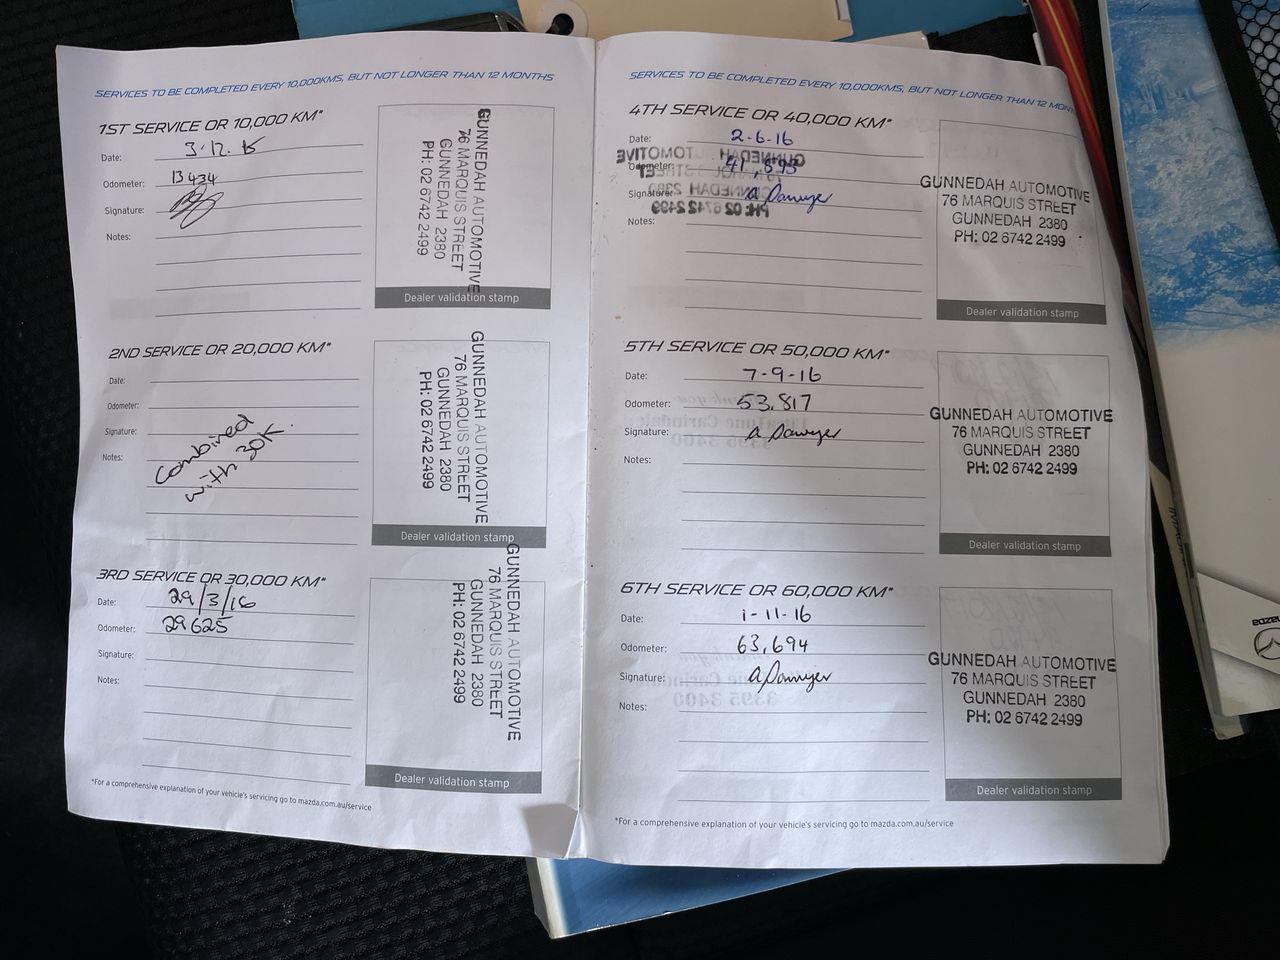 SERVICES TO BE COMPLETED EVERY 10,000KMS, BUT NOT LONGER THAN 12 MONTHS
1ST SERVICE OR 10,000 KM*
Date: 3·12·15
Odometer: 13434
Signature:
Notes:
GUNNEDAH AUTOMOTIVE
76 MARQUIS STREET
GUNNEDAH 2380
PH: 02 6742 2499
Dealer validation stamp
2ND SERVICE OR 20,000 KM*
Date:
Odometer:
Signature:
Notes:
Combined
with 30K.
GUNNEDAH AUTOMOTIVE
76 MARQUIS STREET
GUNNEDAH 2380
PH: 02 6742 2499
Dealer validation stamp
3RD SERVICE OR 30,000 KM*
Date: 29/3/16
Odometer: 29625
Signature:
Notes:
GUNNEDAH AUTOMOTIVE
76 MARQUIS STREET
GUNNEDAH 2380
PH: 02 6742 2499
Dealer validation stamp
*For a comprehensive explanation of your vehicle's servicing go to mazda.com.au/service
SERVICES TO BE COMPLETED EVERY 10,000KMS, BUT NOT LONGER THAN 12
4TH SERVICE OR 40,000 KM*
Date: 2-6-16
Odometer: 41,893
Signature: a Sawyer
Notes:
GUNNEDAH AUTOMOTIVE
76 MARQUIS STREET
GUNNEDAH 2380
PH: 02 6742 2499
Dealer validation stamp
5TH SERVICE OR 50,000 KM*
Date: 7-9-16
Odometer: 53,817
Signature: a Sawyer
Notes:
GUNNEDAH AUTOMOTIVE
76 MARQUIS STREET
GUNNEDAH 2380
PH: 02 6742 2499
Dealer validation stamp
6TH SERVICE OR 60,000 KM*
Date: 1-11-16
Odometer: 63,694
Signature: a Sawyer
Notes:
GUNNEDAH AUTOMOTIVE
76 MARQUIS STREET
GUNNEDAH 2380
PH: 02 6742 2499
Dealer validation stamp
*For a comprehensive explanation of your vehicle's servicing go to mazda.com.au/service
mazda